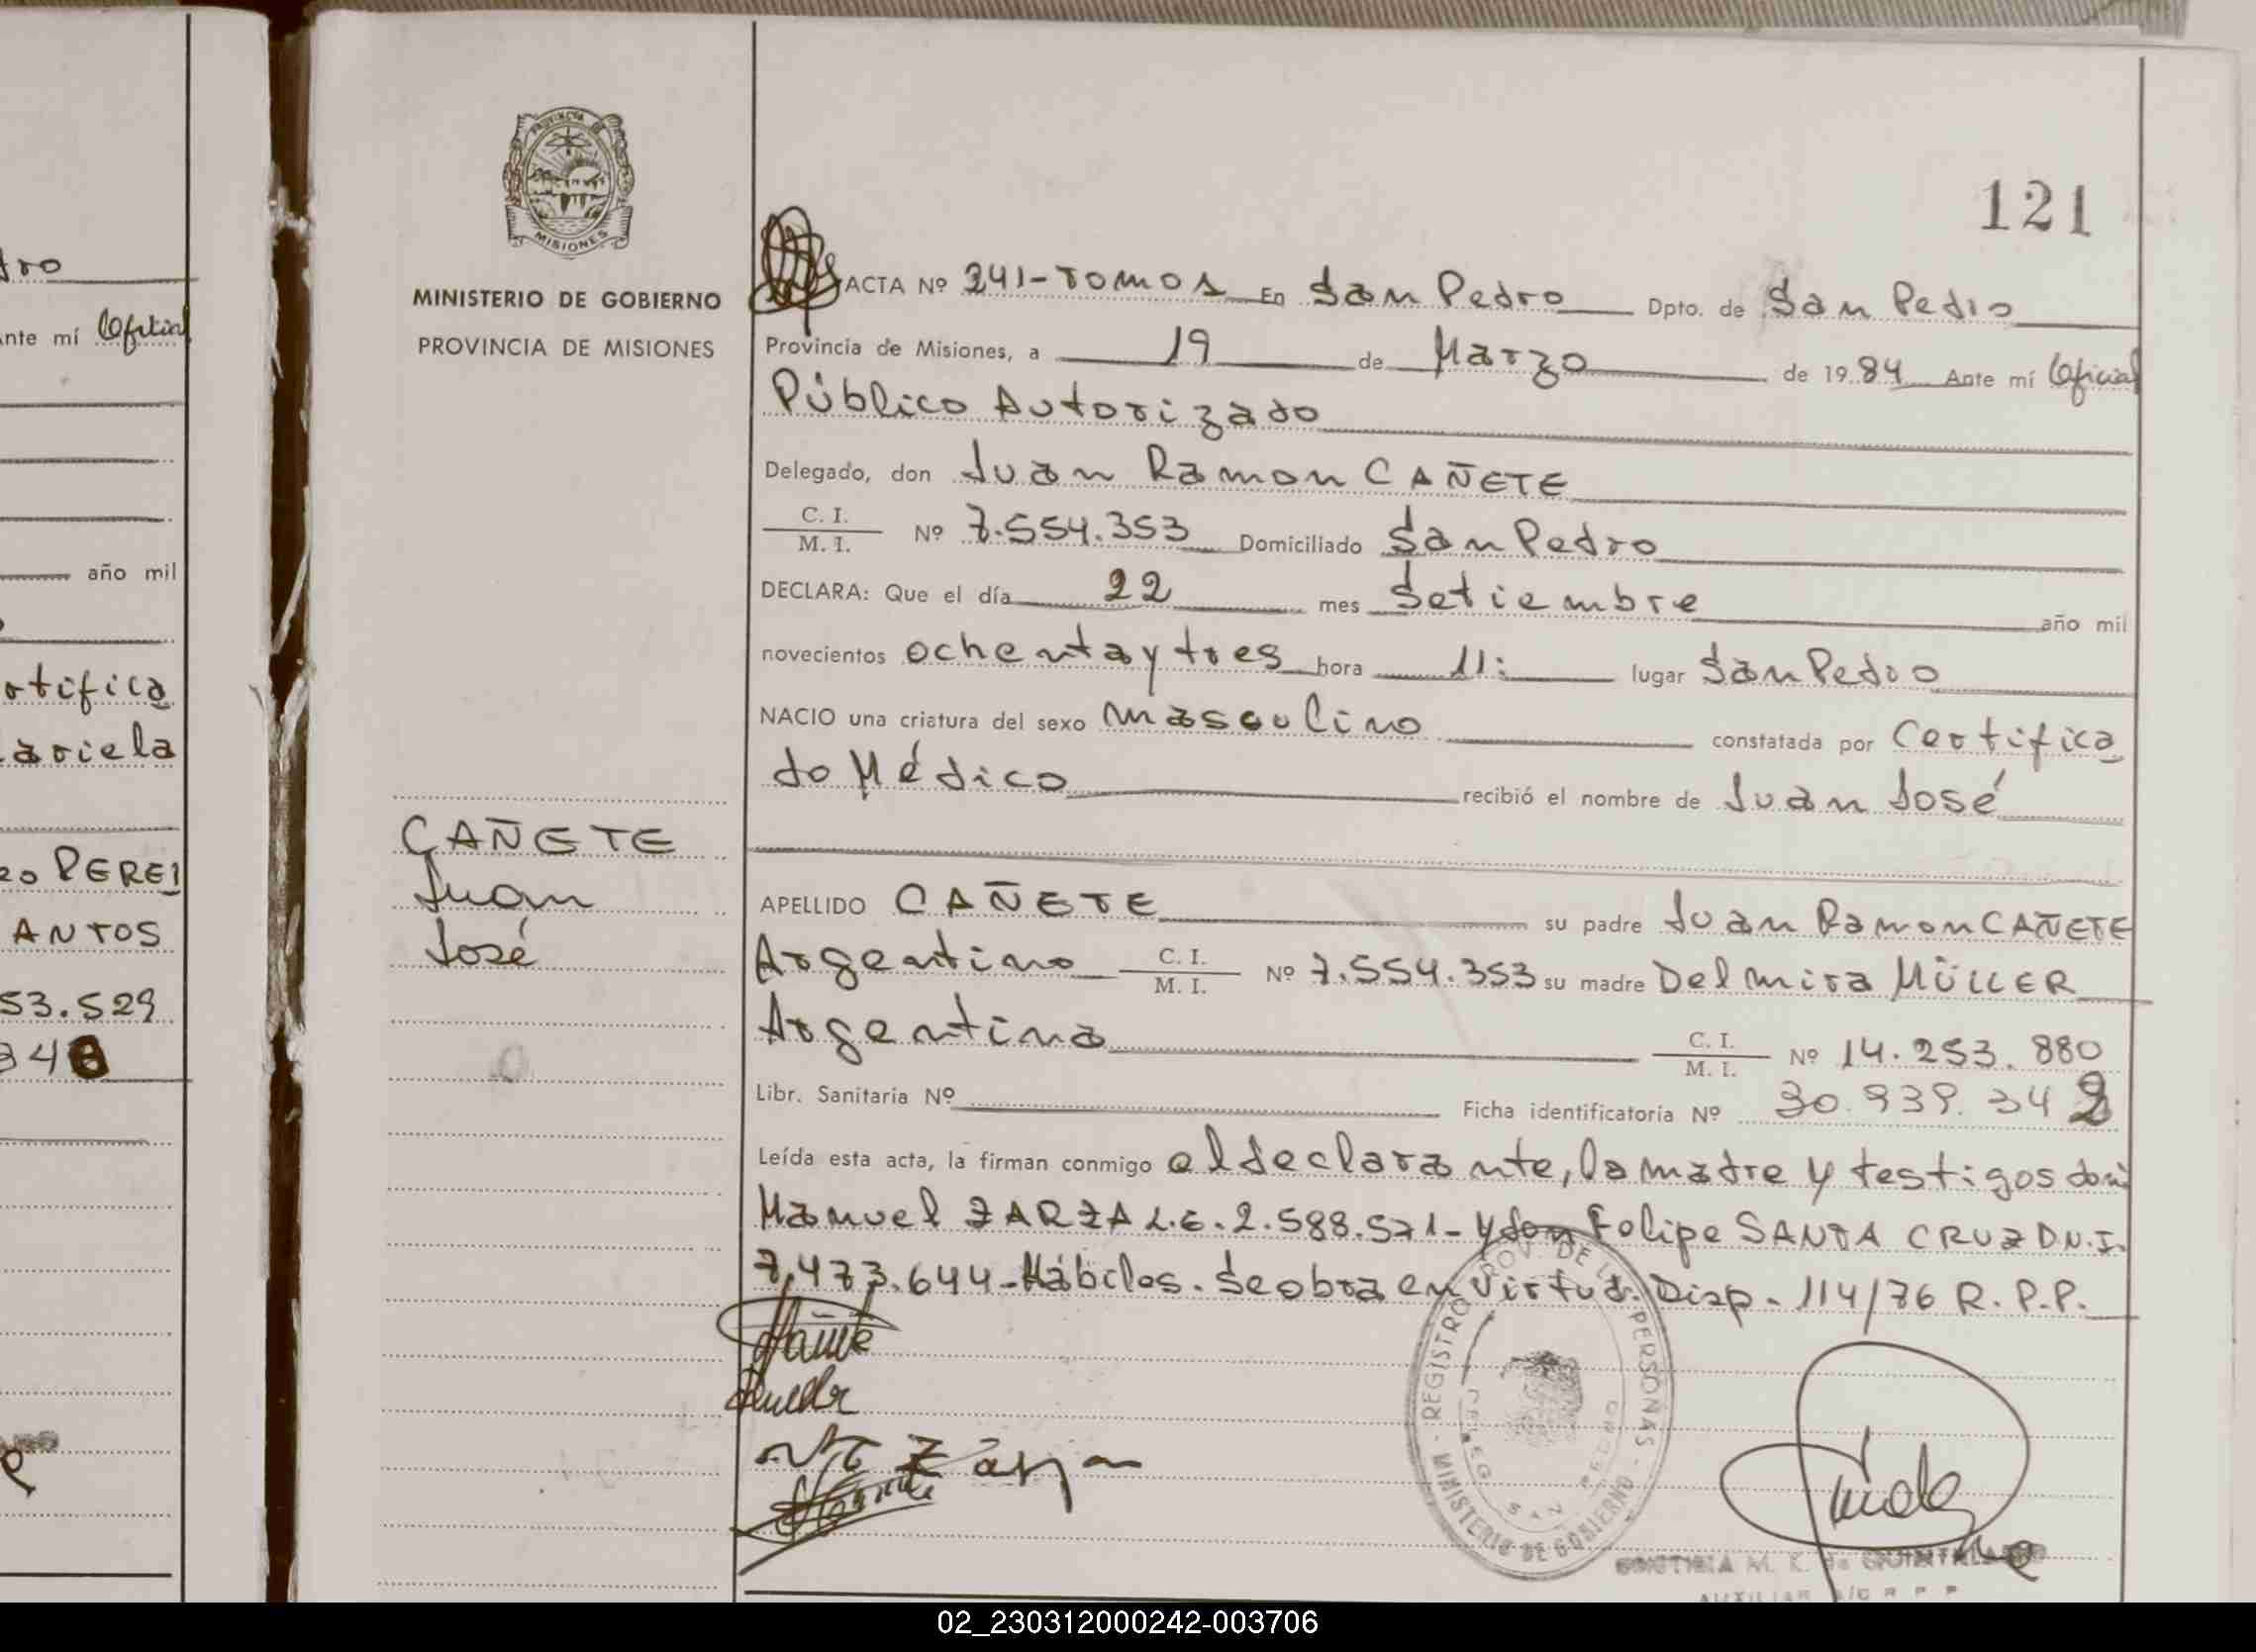 tro
nte mí Oficial
año mil
rtifica
ariela
ro PEREI
ANTOS
53.529
346
PROVINCIA
MISIONES
MINISTERIO DE GOBIERNO
PROVINCIA DE MISIONES
CAÑETE
Juan
José
121
ACTA Nº 241-TOMO S En San Pedro Dpto. de San Pedro
Provincia de Misiones, a 19 de Marzo de 1984 Ante mí Oficial
Público Autorizado
Delegado, don Juan Ramon CAÑETE
C. I. / M. I. Nº 7.554.353 Domiciliado San Pedro
DECLARA: Que el día 22 mes Setiembre año mil
novecientos ochenta y tres hora 11: lugar San Pedro
NACIO una criatura del sexo masculino constatada por Certifica
do Médico recibió el nombre de Juan José
APELLIDO CAÑETE su padre Juan Ramon CAÑETE
Argentino C. I. / M. I. Nº 7.554.353 su madre Delmira MÜLLER
Argentina C. I. / M. I. Nº 14.253.880
Libr. Sanitaria Nº Ficha identificatoria Nº 30.939.342
Leída esta acta, la firman conmigo el declarante, la madre y testigos don
Manuel ZARZA L.E. 2.588.571- y don Felipe SANTA CRUZ D.N.I.
7.473.644-Hábiles. Se obra en Virtud. Disp. 114/76 R.P.P.
REGISTRO PROV. DE LAS PERSONAS - MINISTERIO DE GOBIERNO -
SAN PEDRO
M. K. de QUINTELA
AUXILIAR
02_230312000242-003706